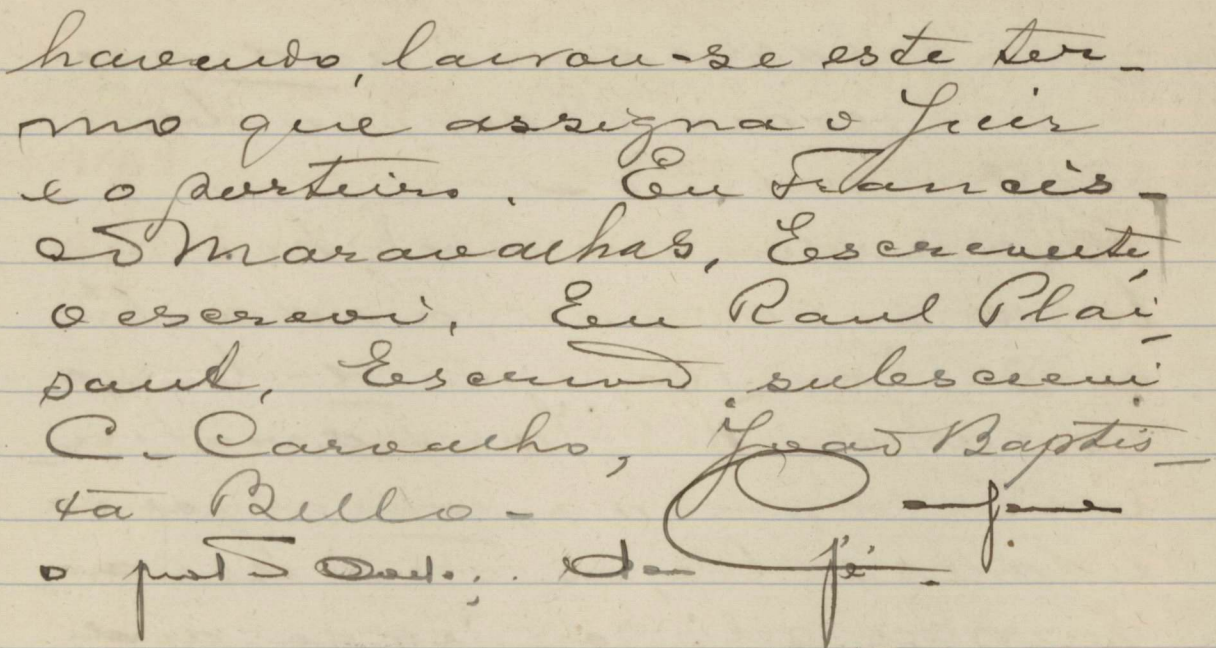 havendo, lavrou-se este ter-
mo que assigna o Juiz
e o porteiro. Eu Francis-
co Maravalhas, Escrevente,
o escrevi. Eu Raul Plai-
sant, Escrivão subscrevi
C. Carvalho, João Baptis-
ta Bello-
Confere
o dou fé.